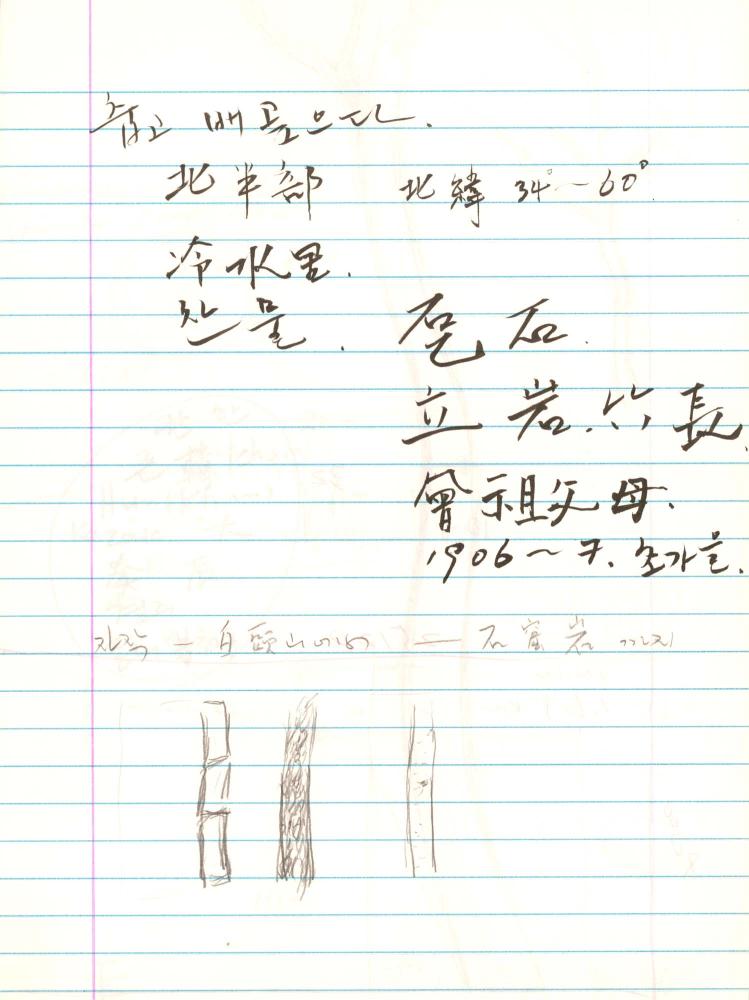 춥고 배곺으다.
北半部 北緯 34°~60°
冷水里.
찬물. 石.
立岩. 竹長.
曾祖父母.
1906~7. 초가을.
시작 — 白頭山에서 — 石窟岩 까지